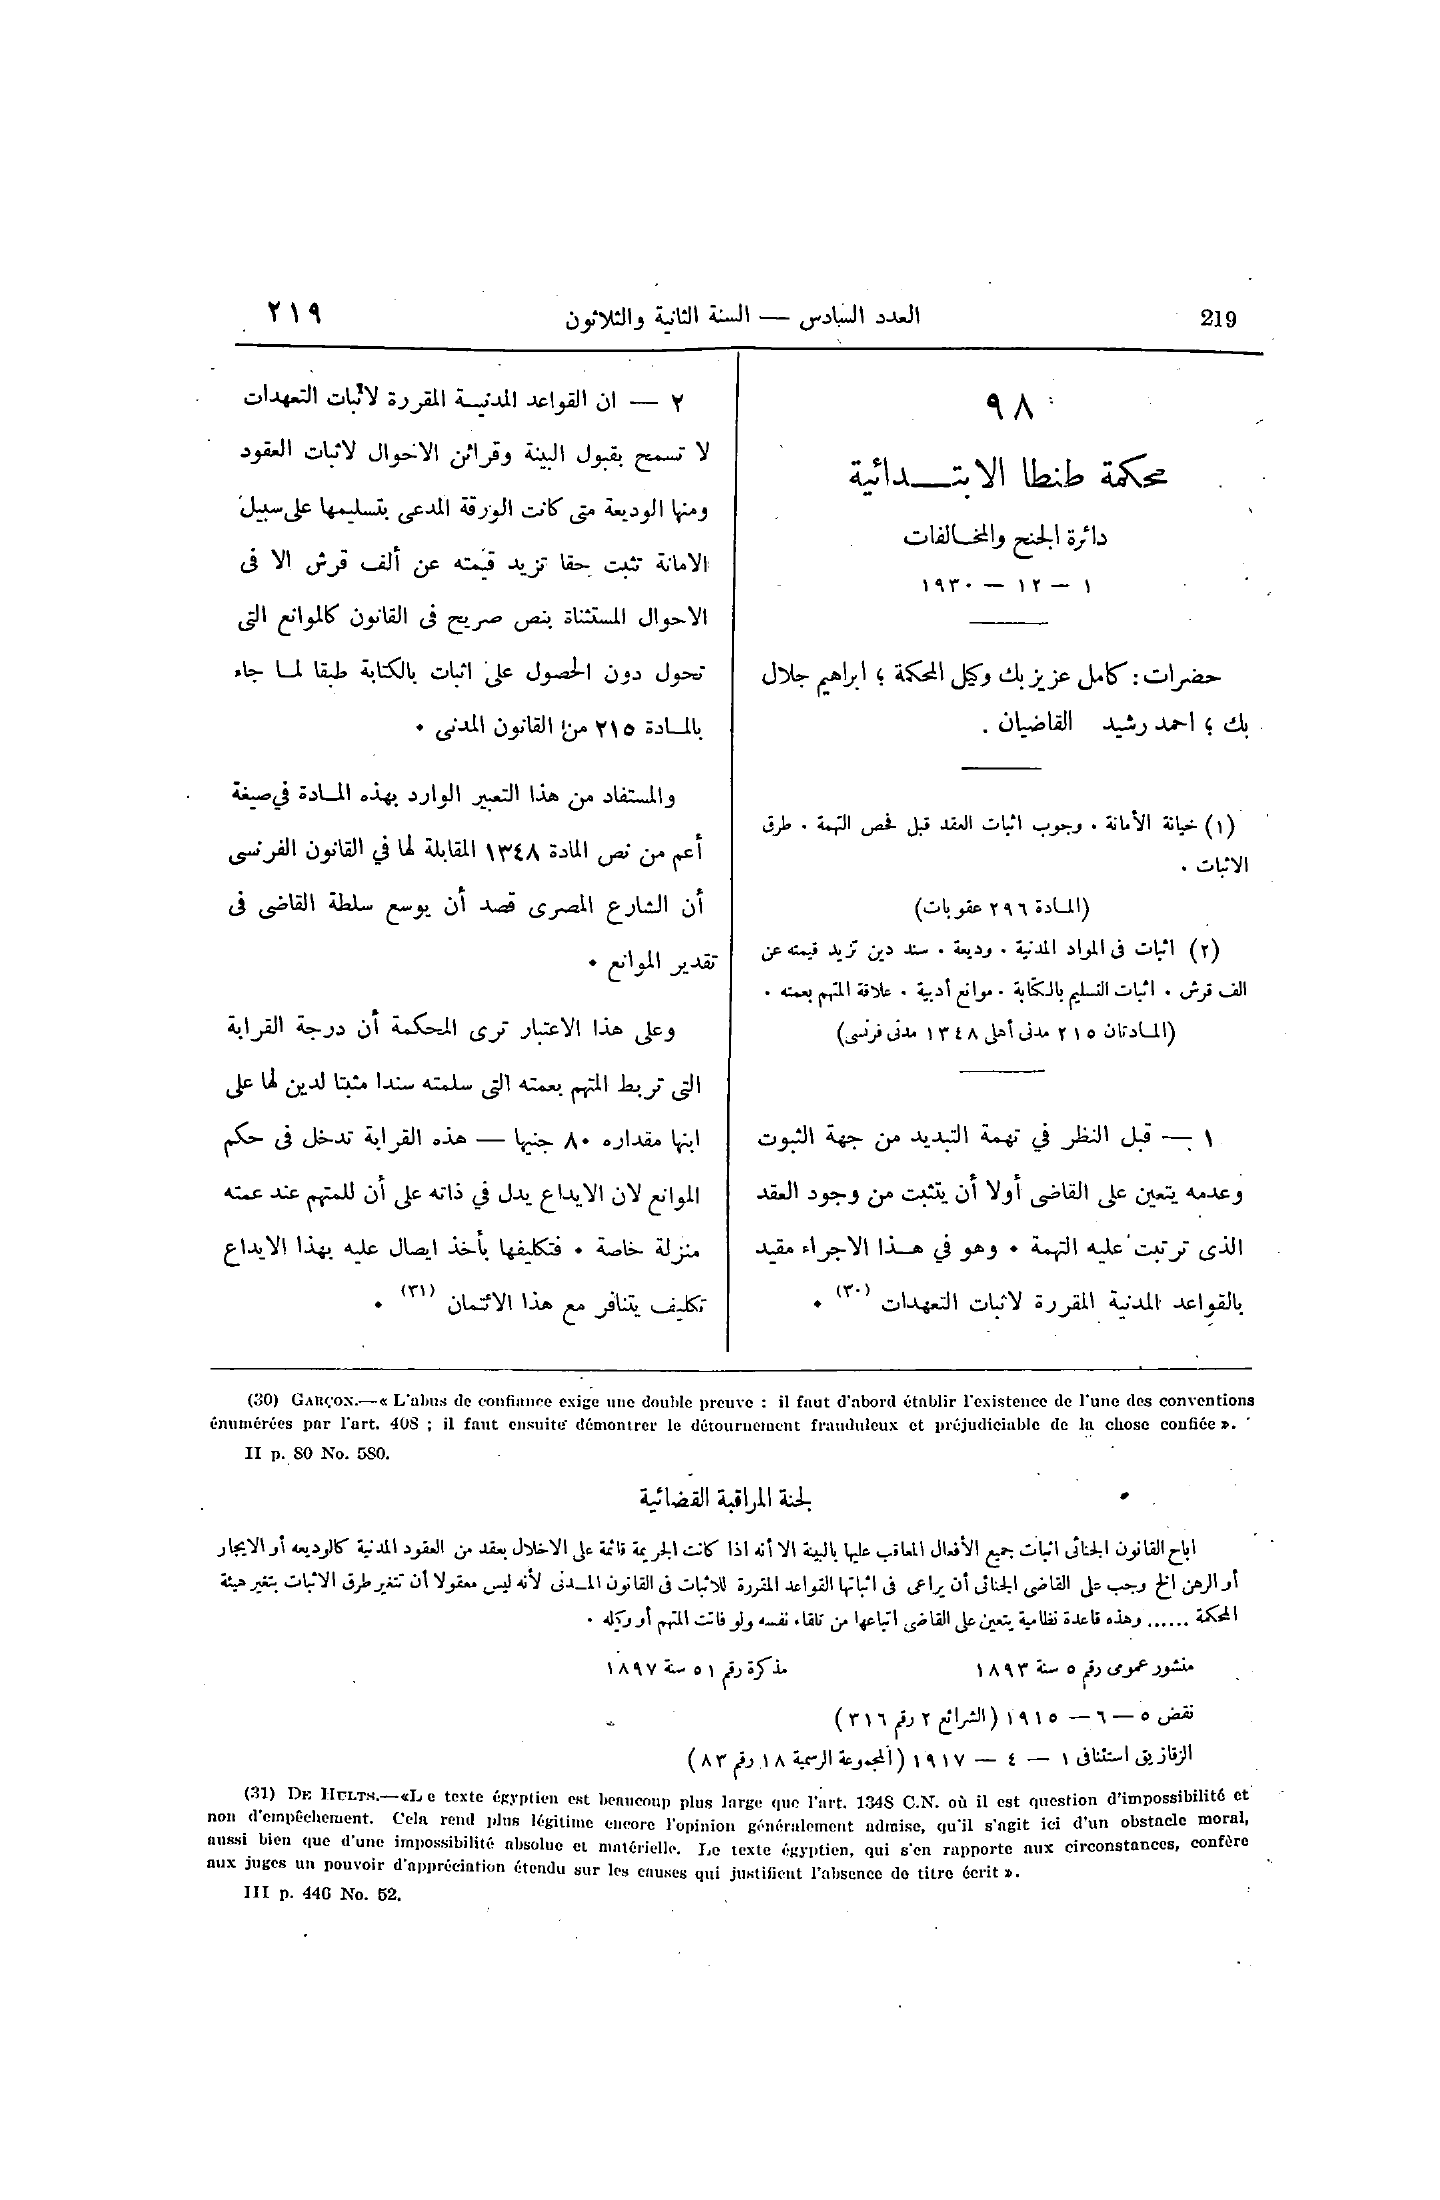 219
العدد السادس — السنة الثانية والثلاثون
٢١٩
٩٨
محكمة طنطا الابتـــدائية
دائرة الجنح والمخـالفات
١ — ١٢ — ١٩٣٠
حضرات: كامل عزيز بك وكيل المحكمة ؛ ابراهيم جلال
بك ؛ احمد رشيد القاضيان .
(١) خيانة الأمانة . وجوب اثبات العقد قبل فحص التهمة . طرق
الاثبات .
(المـادة ٢٩٦ عقوبات)
(٢) اثبات فى المواد المدنية . وديعة . سند دين تزيد قيمته عن
الف قرش . اثبات التسليم بالكتابة . موانع أدبية . علاقة المتهم بعمته .
(المـادتان ٢١٥ مدنى أهلى ١٣٤٨ مدنى فرنسى)
١ — قبل النظر في تهمة التبديد من جهة الثبوت
وعدمه يتعين على القاضى أولا أن يتثبت من وجود العقد
الذى ترتبت عليه التهمة . وهو في هـذا الاجراء مقيد
بالقواعد المدنية المقررة لاثبات التعهدات (٣٠) .
٢ — ان القواعد المدنيـة المقررة لاثبات التعهدات
لا تسمح بقبول البينة وقرائن الاحوال لاثبات العقود
ومنها الوديعة متى كانت الورقة المدعى بتسليمها على سبيل
الامانة تثبت حقا تزيد قيمته عن ألف قرش الا فى
الاحوال المستثناة بنص صريح فى القانون كالموانع التى
تحول دون الحصول على اثبات بالكتابة طبقا لمـا جاء
بالمـادة ٢١٥ من القانون المدنى .
والمستفاد من هذا التعبير الوارد بهذه المـادة في صيغة
أعم من نص المادة ١٣٤٨ المقابلة لها في القانون الفرنسى
أن الشارع المصرى قصد أن يوسع سلطة القاضى فى
تقدير الموانع .
وعلى هذا الاعتبار ترى المحكمة أن درجة القرابة
التى تربط المتهم بعمته التى سلمته سندا مثبتا لدين لها على
ابنها مقداره ٨٠ جنيها — هذه القرابة تدخل فى حكم
الموانع لان الايداع يدل في ذاته على أن للمتهم عند عمته
منزلة خاصة . فتكليفها بأخذ ايصال عليه بهذا الايداع
تكليف يتنافر مع هذا الائتمان (٣١) .
(30) GARÇON.—« L'abus de confiance exige une double preuve : il faut d'abord établir l'existence de l'une des conventions
énumérées par l'art. 408 ; il faut ensuite démontrer le détournement frauduleux et préjudiciable de la chose confiée ».
II p. 80 No. 580.
لجنة المراقبة القضائية
اباح القانون الجنائى اثبات جميع الأفعال المعاقب عليها بالبينة الا أنه اذا كانت الجريمة قائمة على الاخلال بعقد من العقود المدنية كالوديعه أو الايجار
أو الرهن الخ وجب على القاضى الجنائى أن يراعى فى اثباتها القواعد المقررة للاثبات فى القانون المـدنى لأنه ليس معقولا أن تتغير طرق الاثبات بتغير هيئة
المحكمة ...... وهذه قاعدة نظامية يتعين على القاضى اتباعها من تلقاء نفسه ولو فاتت المتهم أو وكيله .
منشور عمومى رقم ٥ سنة ١٨٩٣
مذكرة رقم ٥١ سنة ١٨٩٧
نقض ٥ — ٦ — ١٩١٥ (الشرائع ٢ رقم ٣١٦)
الزقازيق استئنافى ١ — ٤ — ١٩١٧ (المجموعة الرسمية ١٨ رقم ٨٣)
(31) DE HULTS.—«Le texte égyptien est beaucoup plus large que l'art. 1348 C.N. où il est question d'impossibilité et
non d'empêchement. Cela rend plus légitime encore l'opinion généralement admise, qu'il s'agit ici d'un obstacle moral,
aussi bien que d'une impossibilité absolue et matérielle. Le texte égyptien, qui s'en rapporte aux circonstances, confère
aux juges un pouvoir d'appréciation étendu sur les causes qui justifient l'absence de titre écrit ».
III p. 446 No. 52.